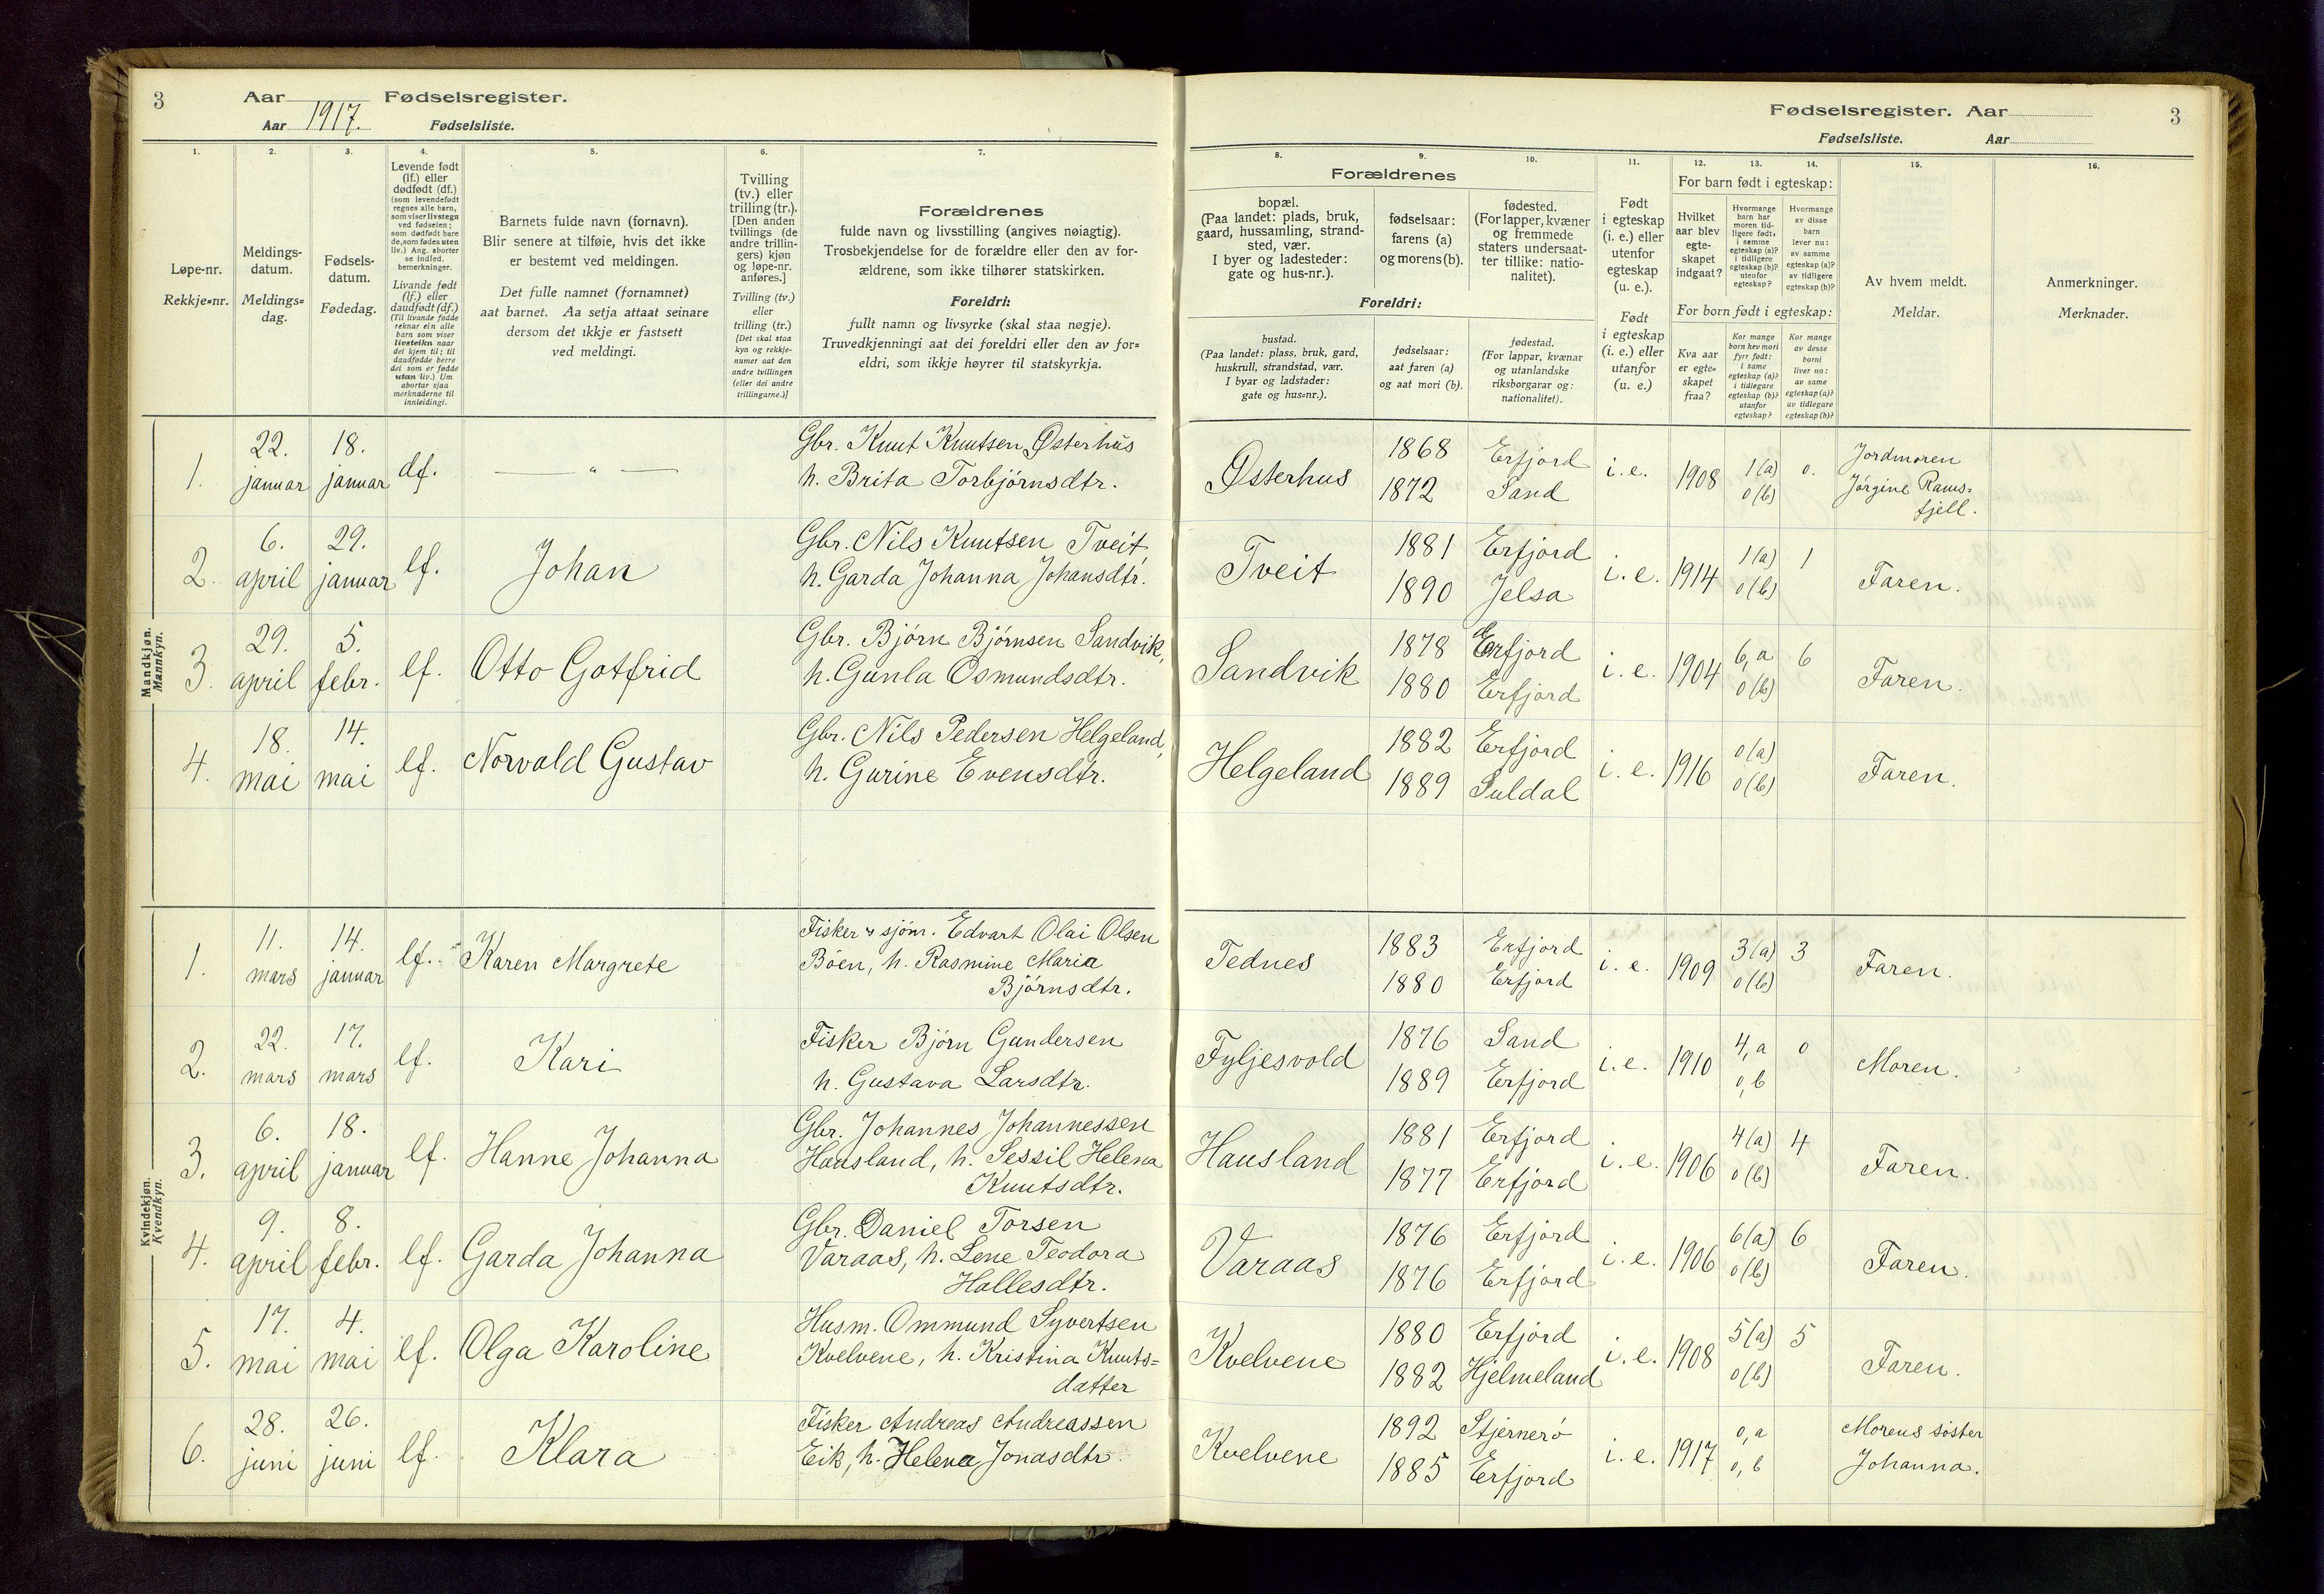 3 Aar Fødselsregister.
Aar 1917. Fødselsliste.
Fødselsregister. Aar 3
Fødselsliste. Aar
1. 2. 3. 4. 5. 6. 7.
Løpe-nr.
Rekkje-nr.
Meldings-
datum.
Meldings-
dag.
Fødsels-
datum.
Fødedag.
Levende født
(lf.) eller
dødfødt (df.)
(som levendefødt
regnes alle barn,
som viser livstegn
ved fødselen;
som dødfødt bare
de, som fødes uten
liv.) Ang. aborter
se indled.
bemerkninger.
Livande født
(lf.) eller
daudfødt (df.)
(Til livande fødde
reknar ein alle
barn som viser
livsteikn naar
dei kjem til; til
daudfødde berre
dei som er fødde
utan liv.) Um
abortar sjaa
merknaderne til
innleidingi.
Barnets fulde navn (fornavn).
Blir senere at tilføie, hvis det ikke
er bestemt ved meldingen.
Det fulle namnet (fornamnet)
aat barnet. Aa setja attaat seinare
dersom det ikkje er fastsett
ved meldingi.
Tvilling
(tv.) eller
trilling (tr.).
[Den anden
tvillings (de
andre trillin-
gers) kjøn
og løpe-nr.
anføres.]
Tvilling (tv.)
eller
trilling (tr.)
[Det skal staa
kyn og rekkje-
numer aat den
andre tvillingen
(eller dei andre
trillingarne.)]
Forældrenes
fulde navn og livsstilling (angives nøiagtig).
Trosbekjendelse for de forældre eller den av for-
ældrene, som ikke tilhører statskirken.
Foreldri:
fullt namn og livsyrke (skal staa nøgje).
Truvedkjenningi aat dei foreldri eller den av for-
eldri, som ikkje høyrer til statskyrkja.
8. 9. 10. 11. 12. 13. 14. 15. 16.
Forældrenes
bopæl.
(Paa landet: plads, bruk,
gaard, hussamling, strand-
sted, vær.
I byer og ladesteder:
gate og hus-nr.).
fødselsaar:
farens (a)
og morens (b).
fødested.
(For lapper, kvæner
og fremmede
staters undersaat-
ter tillike: natio-
nalitet).
Foreldri:
bustad.
(Paa landet: plass, bruk, gard,
huskrull, strandstad, vær.
I byar og ladstader:
gate og hus-nr.).
fødselsaar:
aat faren (a)
og aat mori (b).
fødestad.
(For lappar, kvænar
og utanlandske
riksborgarar og:
nationalitet).
Født
i egteskap
(i. e.) eller
utenfor
egteskap
(u. e.).
Født
i egteskap
(i. e.) eller
utanfor
(u. e.)
For barn født i egteskap:
Hvilket
aar blev
egte-
skapet
indgaat?
Hvormange
barn har
moren tid-
ligere født:
i samme
egteskap (a)?
i tidligere
egteskap (b)?
utenfor
egteskap?
Hvormange
av disse
barn
lever nu:
av samme
egteskap (a)?
av tidligere
egteskap (b)?
For born født i egteskap:
Kva aar
er egte-
skapet
fraa?
Kor mange
born hev mori
fyrr født:
i same
egteskap (a)?
i tidlegare
egteskap (b)?
utanfor
egteskap?
Kor mange
av desse
borni
liver no:
av same
egteskap (a)?
av tidlegare
egteskap (b)?
Av hvem meldt.
Meldar.
Anmerkninger.
Merknader.
Mandkjøn.
Mannkyn.
1. 22. januar 18. januar df. — " — Gbr. Knut Knutsen Østerhus
h. Brita Torbjørnsdtr.
Østerhus 1868 Erfjord i. e. 1908 1(a) 0. Jordmoren
1872 Sand 0(b) Jørgine Rams-
fjell.
2. 6. april 29. januar lf. Johan Gbr. Nils Knutsen Tveit,
h. Garda Johanna Johansdtr.
Tveit 1881 Erfjord i. e. 1914 1(a) 1 Faren.
1890 Jelsa 0(b)
3. 29. april 5. febr. lf. Otto Gotfrid Gbr. Bjørn Bjørnsen Sandvik,
h. Gunla Osmundsdtr.
Sandvik 1878 Erfjord i. e. 1904 6, a 6 Faren.
1880 Erfjord 0(b)
4. 18. mai 14. mai lf. Norvald Gustav Gbr. Nils Pedersen Helgeland,
h. Gurine Evensdtr.
Helgeland 1882 Erfjord i. e. 1916 0(a) Faren.
1889 Suldal 0(b)
Kvindekjøn.
Kvendkyn.
1. 11. mars 14. januar lf. Karen Margrete Fisker & sjøm. Edvart Olai Olsen
Bøen, h. Rasmine Maria
Bjørnsdtr.
Tednes 1883 Erfjord i. e. 1909 3(a) 3 Faren.
1880 Erfjord 0(b)
2. 22. mars 17. mars lf. Kari Fisker Bjørn Gundersen
h. Gustava Larsdtr.
Fyljesvold 1876 Sand i. e. 1910 4, a 0 Moren.
1889 Erfjord 0, b
3. 6. april 18. januar lf. Hanne Johanna Gbr. Johannes Johannessen
Hausland, h. Sessil Helena
Knutsdtr.
Hausland 1881 Erfjord i. e. 1906 4(a) 4 Faren.
1877 Erfjord 0(b)
4. 9. april 8. febr. lf. Garda Johanna Gbr. Daniel Torsen
Varaas, h. Lene Teodora
Hallesdtr.
Varaas 1876 Erfjord i. e. 1906 6(a) 6 Faren.
1876 Erfjord 0(b)
5. 17. mai 4. mai lf. Olga Karoline Husm. Ommund Syvertsen
Kvelvene, h. Kristina Knuts-
datter
Kvelvene 1880 Erfjord i. e. 1908 5(a) 5 Faren.
1882 Hjelmeland 0(b)
6. 28. juni 26. juni lf. Klara Fisker Andreas Andreassen
Eik, h. Helena Jonasdtr
Kvelvene 1892 Stjernerø i. e. 1917 0, a Morens søster
1885 Erfjord 0, b Johanna.